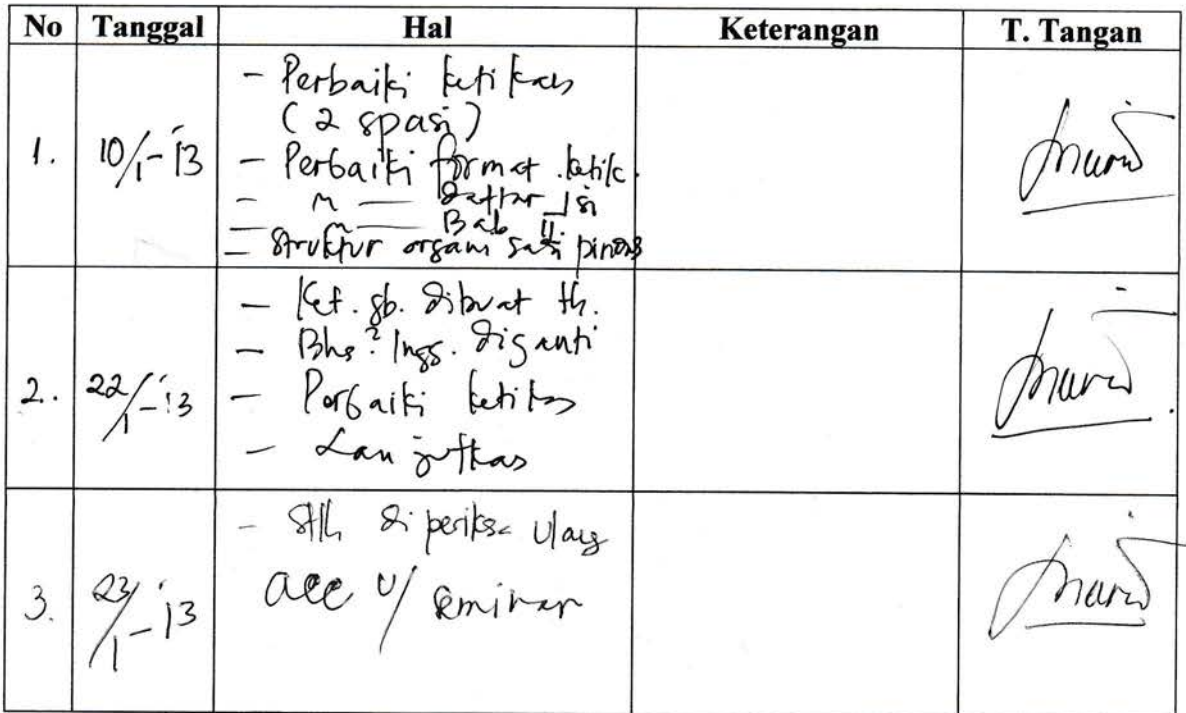 No Tanggal Hal Keterangan T. Tangan
1. 10/1-13
- Perbaiki ketikan
(2 spasi)
- Perbaiki format ketik.
- 〃 — Daftar Isi
- 〃 — Bab II
- Struktur organisasi
2. 22/1-13
- Ket. gb. dibuat th.
- Bhs² Ingg. diganti
- Perbaiki ketikan
- Lanjutkan
3. 23/1-13
- Stlh diperiksa ulang
acc u/ seminar